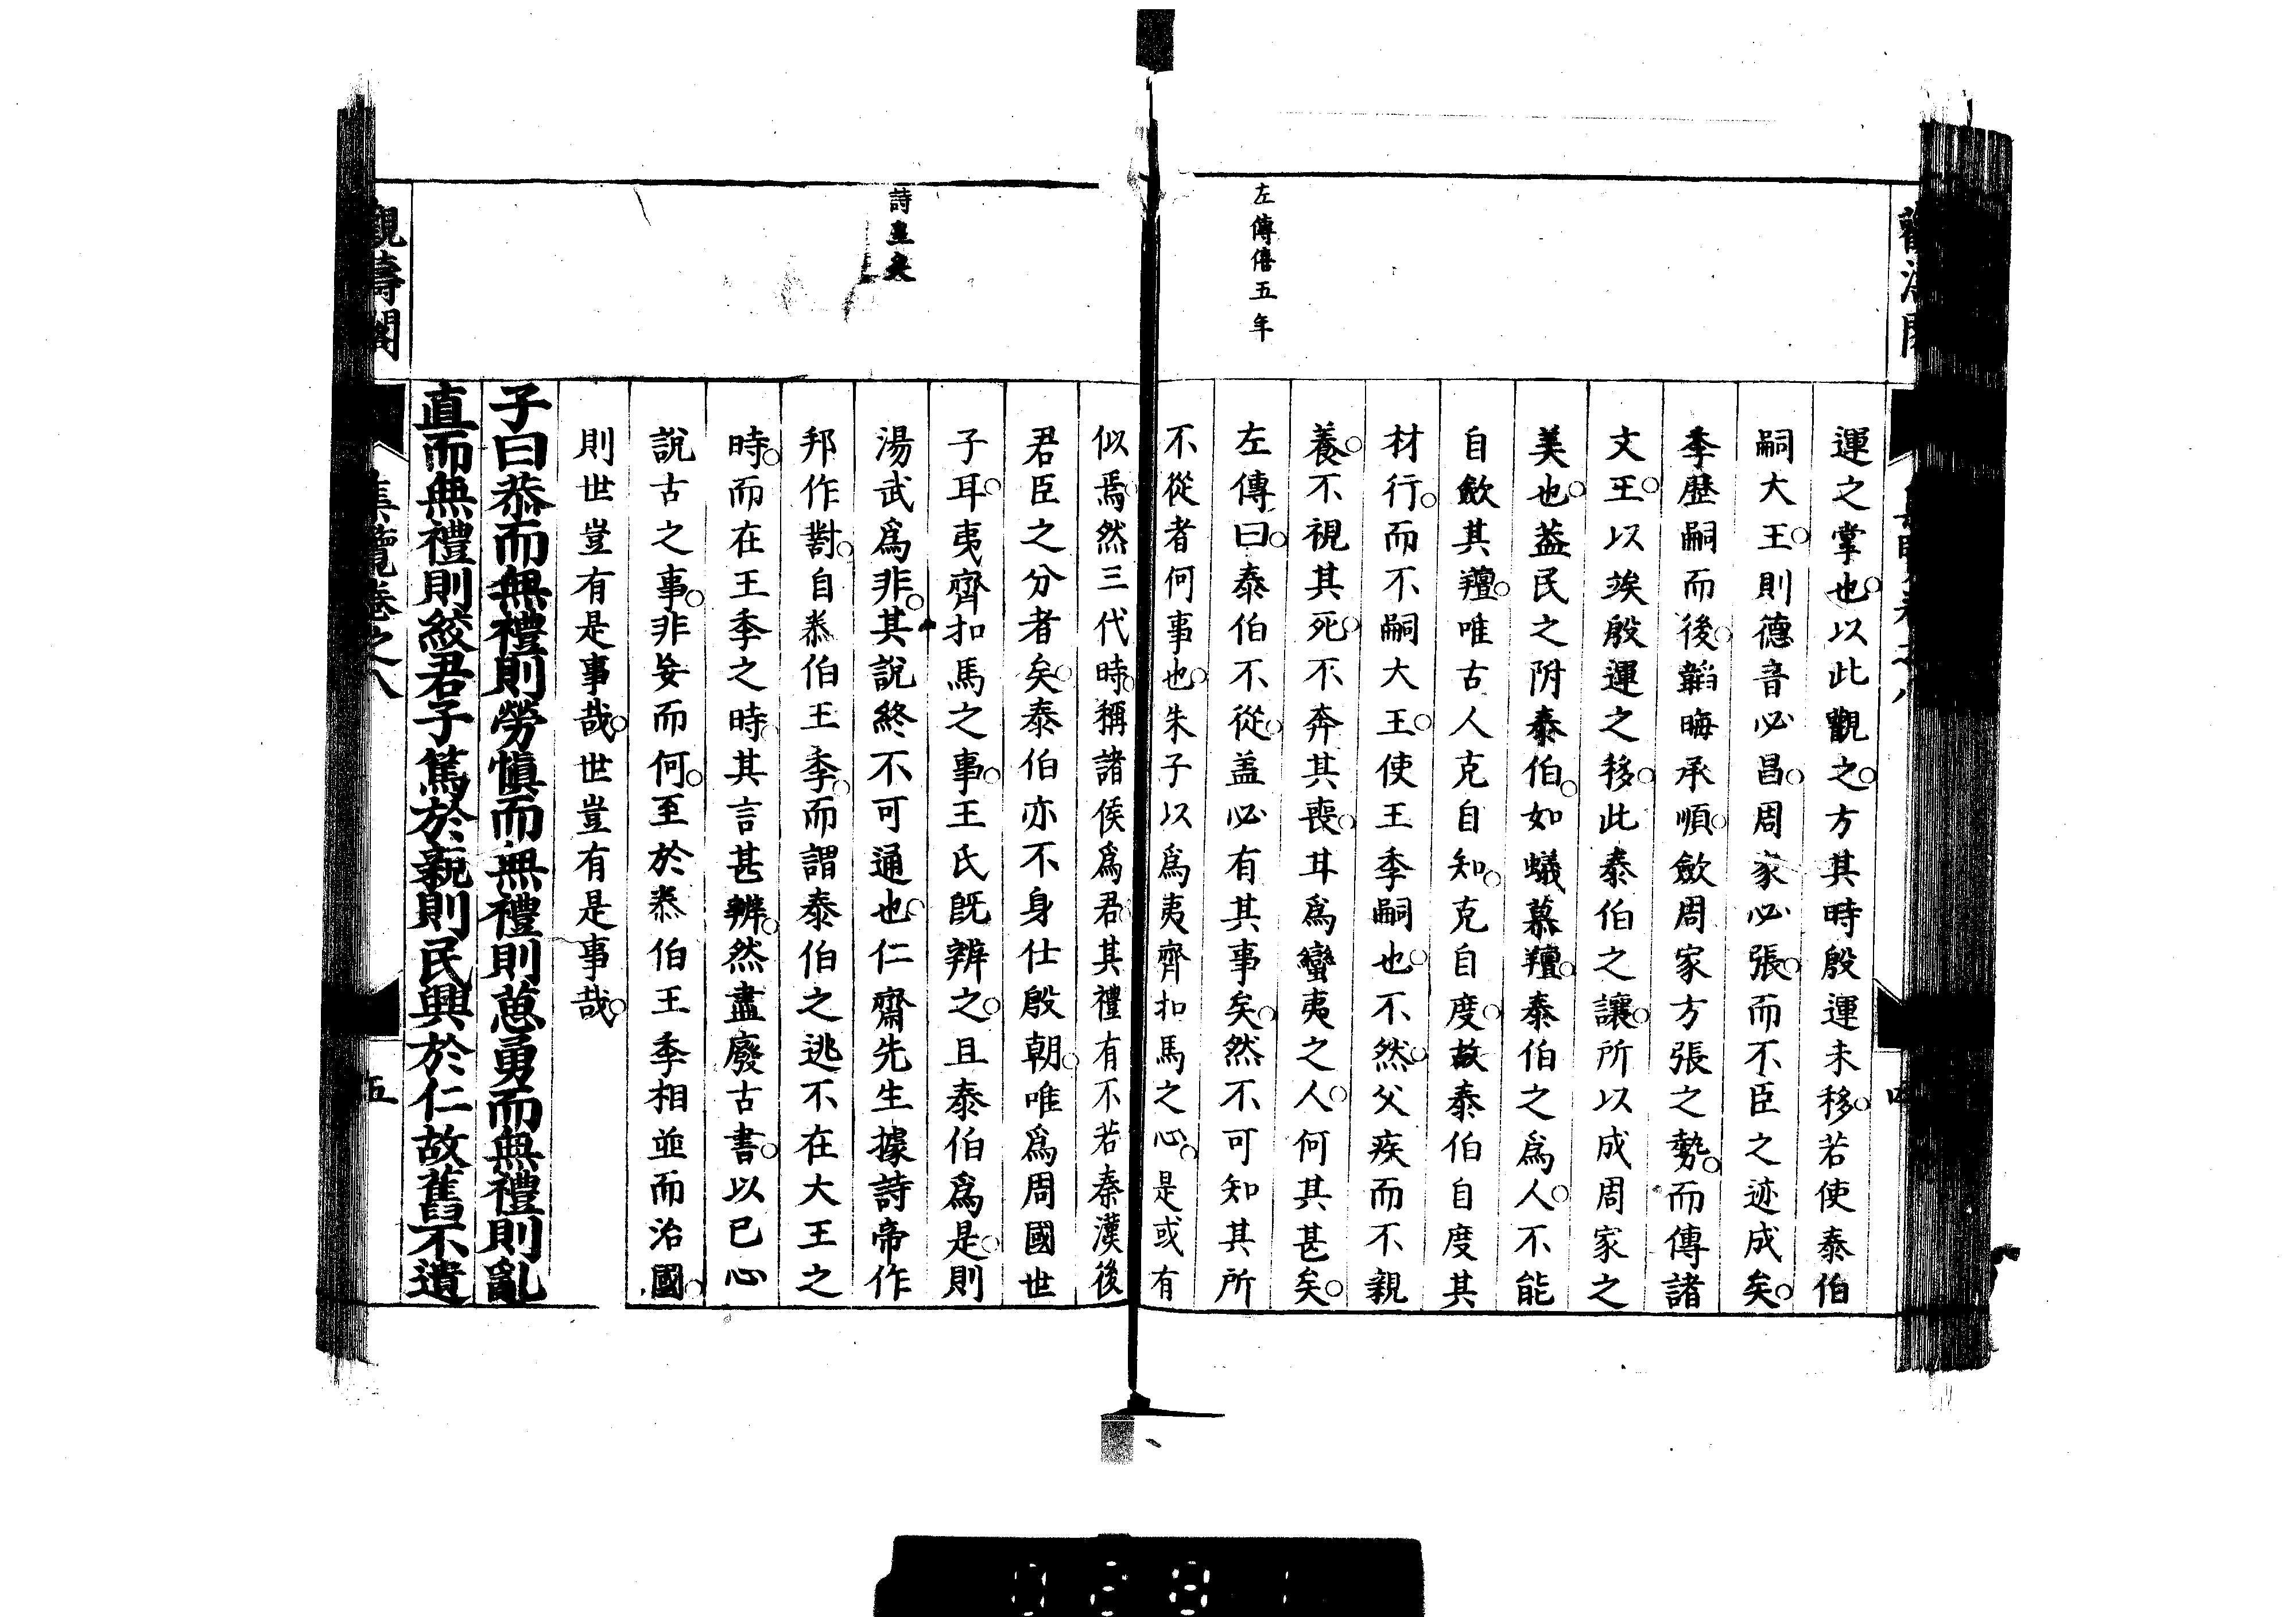 左傳僖五年
運之掌也以此觀之方其時殷運未移若使泰伯
嗣大王則德音必昌周家必張而不臣之迹成矣
季歷嗣而後韜晦承順斂周家方張之勢而傳諸
文王以竢殷運之移此泰伯之讓所以成周家之
美也蓋民之附泰伯如蟻慕羶泰伯之爲人不能
自斂其羶唯古人克自知克自度故泰伯自度其
材行而不嗣大王使王季嗣也不然父疾而不親
養不視其死不奔其喪耳爲蠻夷之人何其甚矣
左傳曰泰伯不從蓋必有其事矣然不可知其所
不從者何事也朱子以爲夷齊扣馬之心是或有
詩皇矣
似焉然三代時稱諸侯爲君其禮有不若秦漢後
君臣之分者矣泰伯亦不身仕殷朝唯爲周國世
子耳夷齊扣馬之事王氏既辨之且泰伯爲是則
湯武爲非其說終不可通也仁齋先生據詩帝作
邦作對自泰伯王季而謂泰伯之逃不在大王之
時而在王季之時其言甚辨然盡廢古書以已心
說古之事非妄而何至於泰伯王季相並而治國
則世豈有是事哉世豈有是事哉
子曰恭而無禮則勞愼而無禮則葸勇而無禮則亂
直而無禮則絞君子篤於親則民興於仁故舊不遺
觀濤閣
集覽卷之八
五